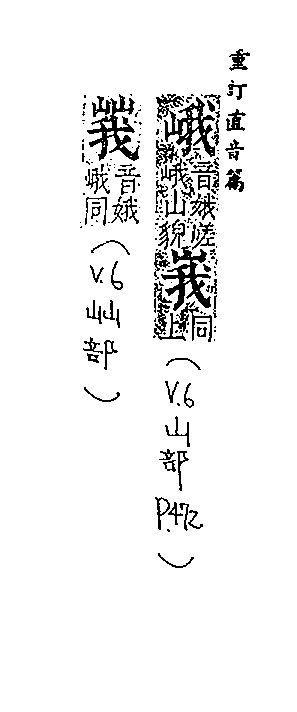 重訂直音篇
峨音娥嵯峨山貌峩同上(V.6山部P.472)
音娥峨同(V.6屾部)